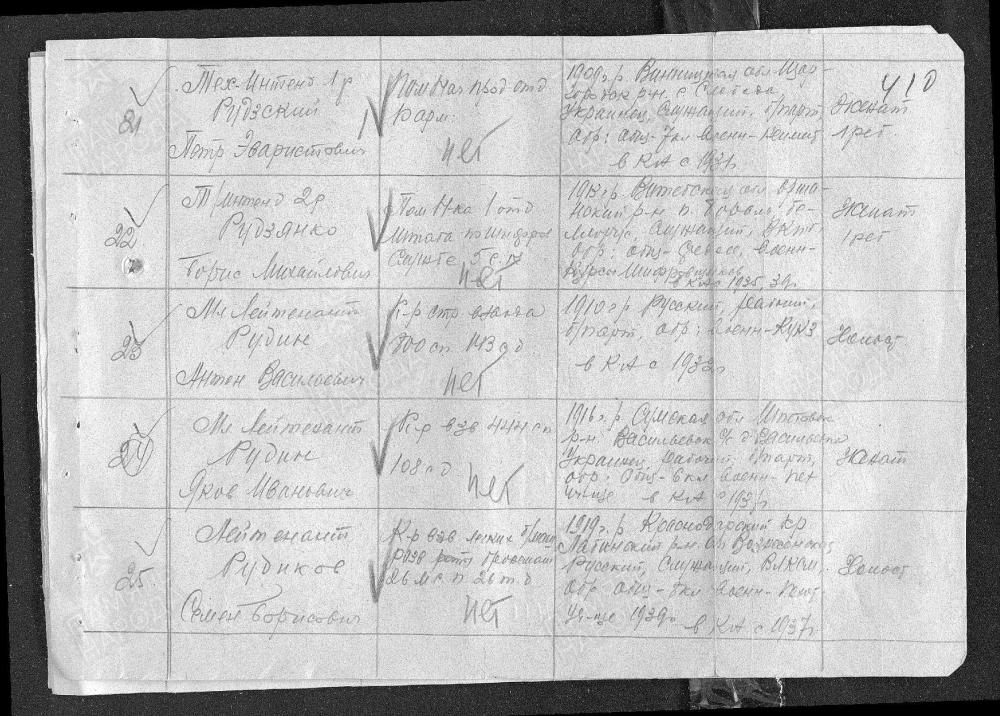 410
81
Тех-Интенд 1р
Рудзский
Петр Эваристович
Пом Нач прод отд
8 арм.
нет
1909 г/р Винницкая обл Шар-
р-н. с Слобода
Украинец, Служащий, б/парт,
обр: общ-7кл Военн-
в КА с 1931г.
Женат
1 реб
22
Т/интенд 2р
Рудзянко
Борис Михайлович
Пом Н-ка 1 отд
Штаба по шифров
Службе,
нет
1913 г/р Витебская обл Орша-
нский р-н п. Бе-
лорус, Служащий,
Обр: общ- Военн-
Курсы Шифровщиков
в КА с 1935, 39г.
Женат
1 реб
23
Мл Лейтенант
Рудин
Антон Васильевич
К-р стр взвода
800 сп 143 сд
нет
1910 г/р Русский, рабочий,
б/парт, обр: Военн-
в КА с 1932г
Холост
24
Мл Лейтенант
Рудин
Яков Иванович
К-р взв 444 сп
108 сд
нет
1916 г/р Сумская обл
р-н. д Васильевка
Украинец, рабочий, б/парт,
обр: общ-6 кл военн- пех
уч-ще в КА с 1937г.
Женат
25
Лейтенант
Рудиков
Семен Борисович
К-р взв
разв роты
26 мсп 26 т д
нет
1919 г/р Краснодарский кр
Лабинский р-н
Русский, Служащий, ВЛКСМ.
Обр общ- Военн- пех
Уч-ще 1939г в КА с 1937г
Холост